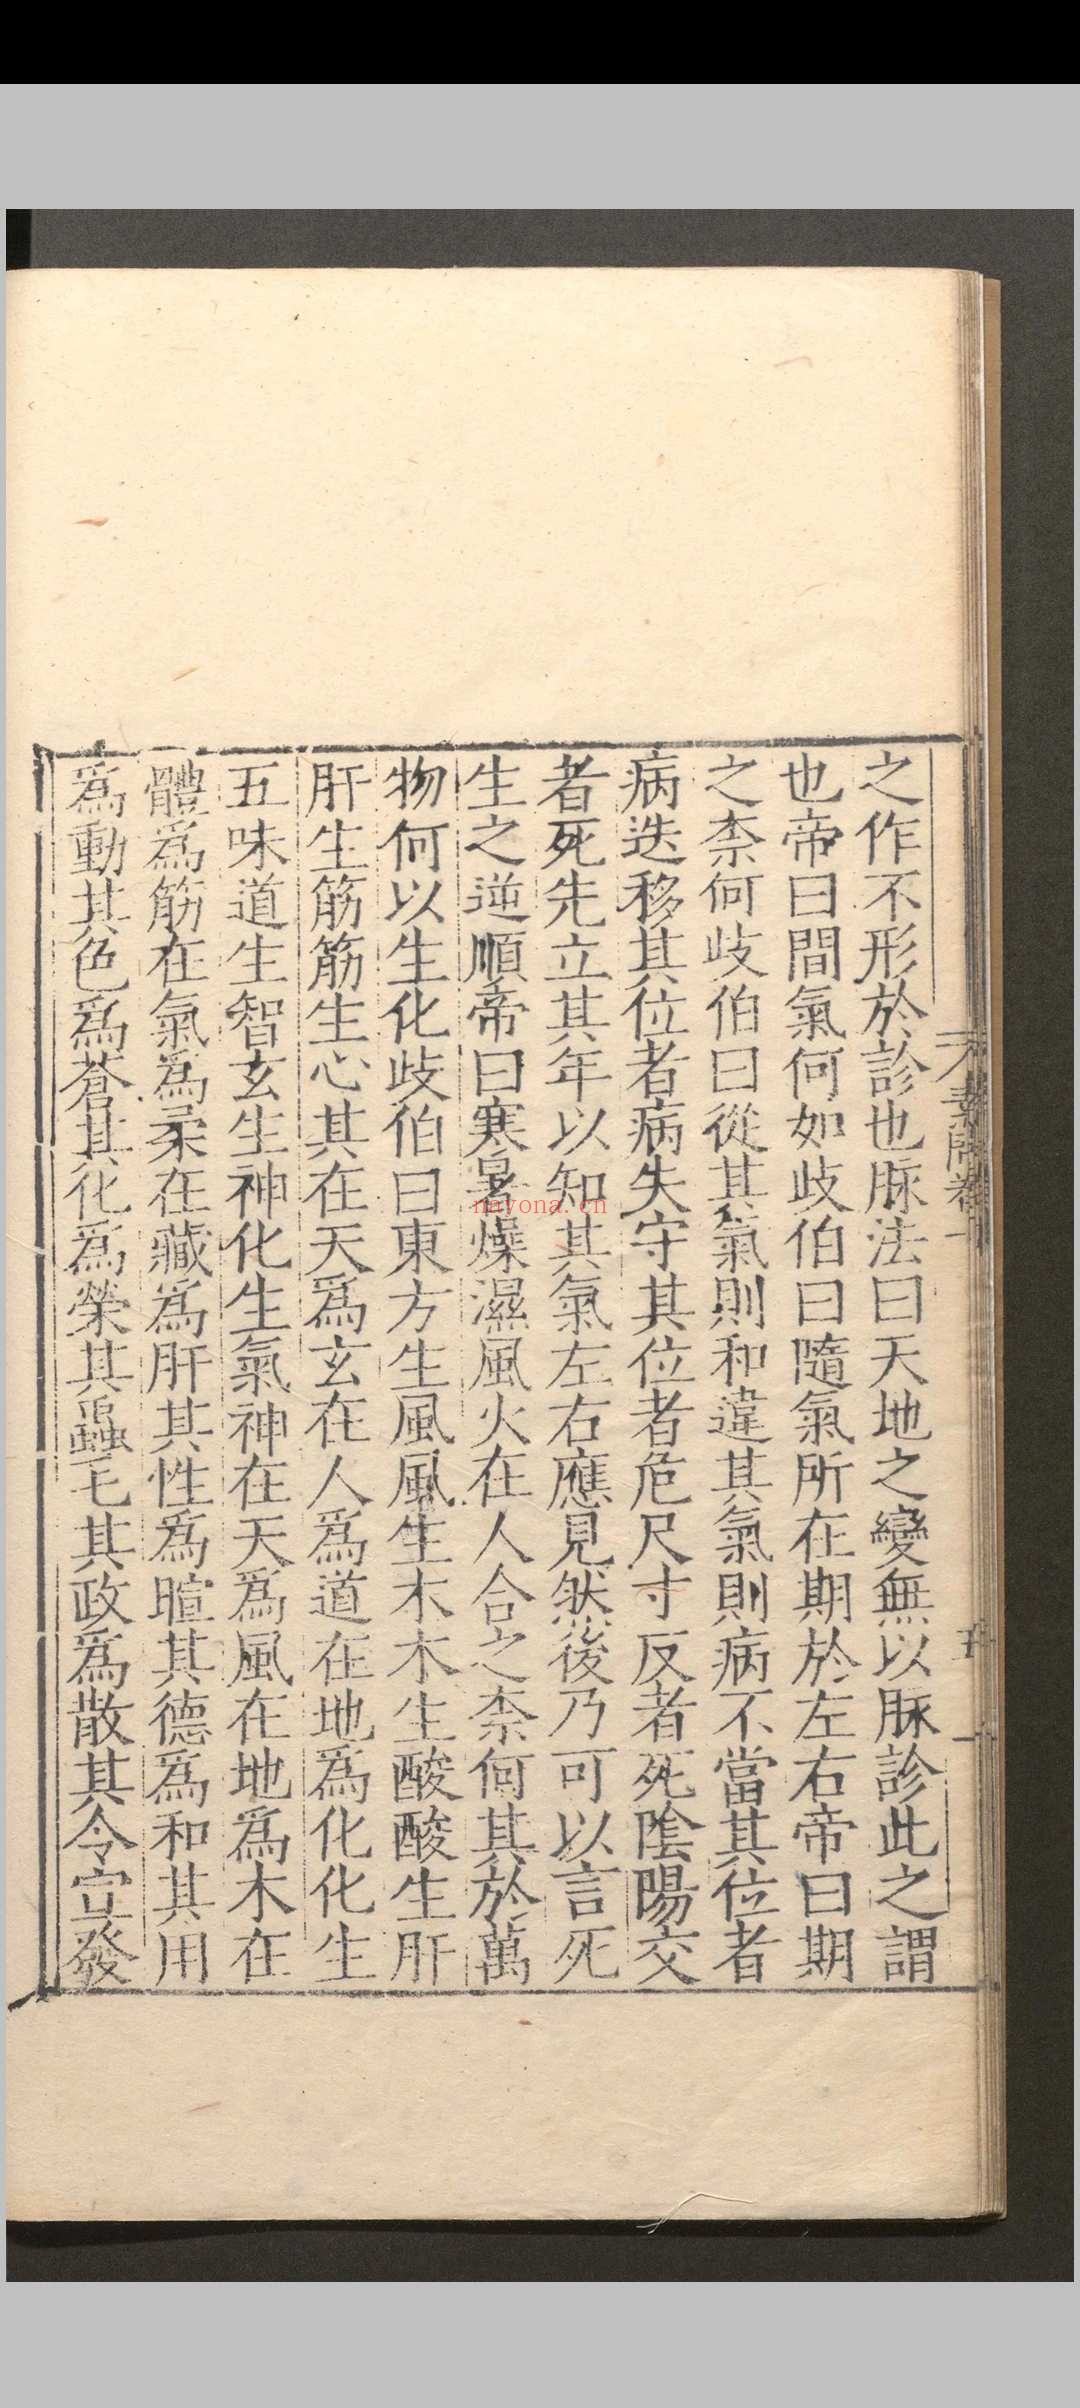 之作不形於診也脉法曰天地之變無以脉診此之謂
也帝曰間氣何如歧伯曰隨氣所在期於左右帝曰期
之柰何歧伯曰從其氣則和違其氣則病不當其位者
病迭移其位者病失守其位者危尺寸反者死陰陽交
者死先立其年以知其氣左右應見然後乃可以言死
生之逆順帝曰寒暑燥濕風火在人合之柰何其於萬
物何以生化歧伯曰東方生風風生木木生酸酸生肝
肝生筋筋生心其在天爲玄在人爲道在地爲化化生
五味道生智玄生神化生氣神在天爲風在地爲木在
體爲筋在氣爲柔在藏爲肝其性爲暄其德爲和其用
爲動其色爲蒼其化爲榮其蟲毛其政爲散其令宣發
素問卷
五
nayona.cn